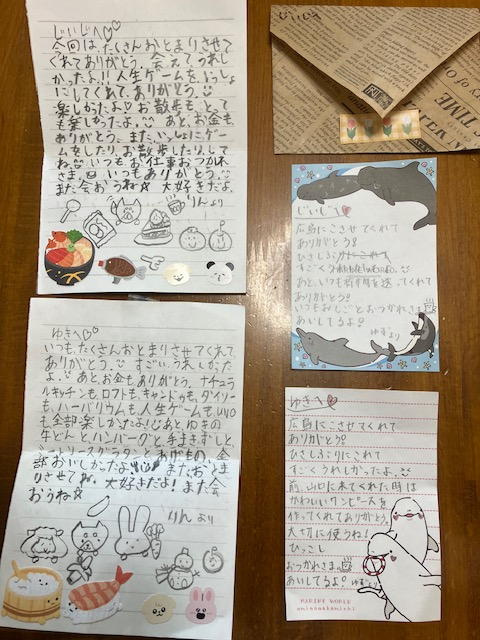 じいじへ♡♡
今回は、たくさんおとまりさせて
くれてありがとう。会えてうれし
かったよ!!人生ゲームを、いっしょ
にしてくれて、ありがとう。
楽しかったよ♡お散歩も、とって
も楽しかったよ。あと、お金も
ありがとう。また、いっしょにゲー
ムをしたり、お散歩したりして
ね。いつもお仕事おつかれ
さま。いつもありがとう。
また会おうね☆大好きだよ。
りんより
ゆきへ♡♡
いつも、たくさんおとまりさせてくれて、
ありがとう。すごい、うれしかった
よ。あと、お金もありがとう。ナチュラ
ルキッチンも、ロフトも、キャンドゥも、ダイソー
も、ハーバリウムも、人生ゲームも、UNO
も全部楽しかったよ!あと、ゆきの
牛どんとハンバーグと手まきずしと、
シーフード グラタンと あげもの、全
部おいしかったよ。また、おとま
りさせてね。大好きだよ!また会
おうね☆
りんより
じいじへ
TIME
じいじへ♡
広島にこさせてくれて
ありがとう!
ひさしぶり
すごく
あと、いつも荷物を送ってくれて
ありがとう!
いつもおしごとおつかれさま
あいしてるよ!
ゆずより
ゆきへ♡
広島にこさせてくれて
ありがとう!
ひさしぶりにこれて
すごくうれしかったよ。
前、山口に来てくれた時は
かわいいワンピースを
作ってくれてありがとう。
大切に使うね!
ひっこし
おつかれさま。
あいしてるよ!ゆずより
MARINE WORLD
uminonakamichi